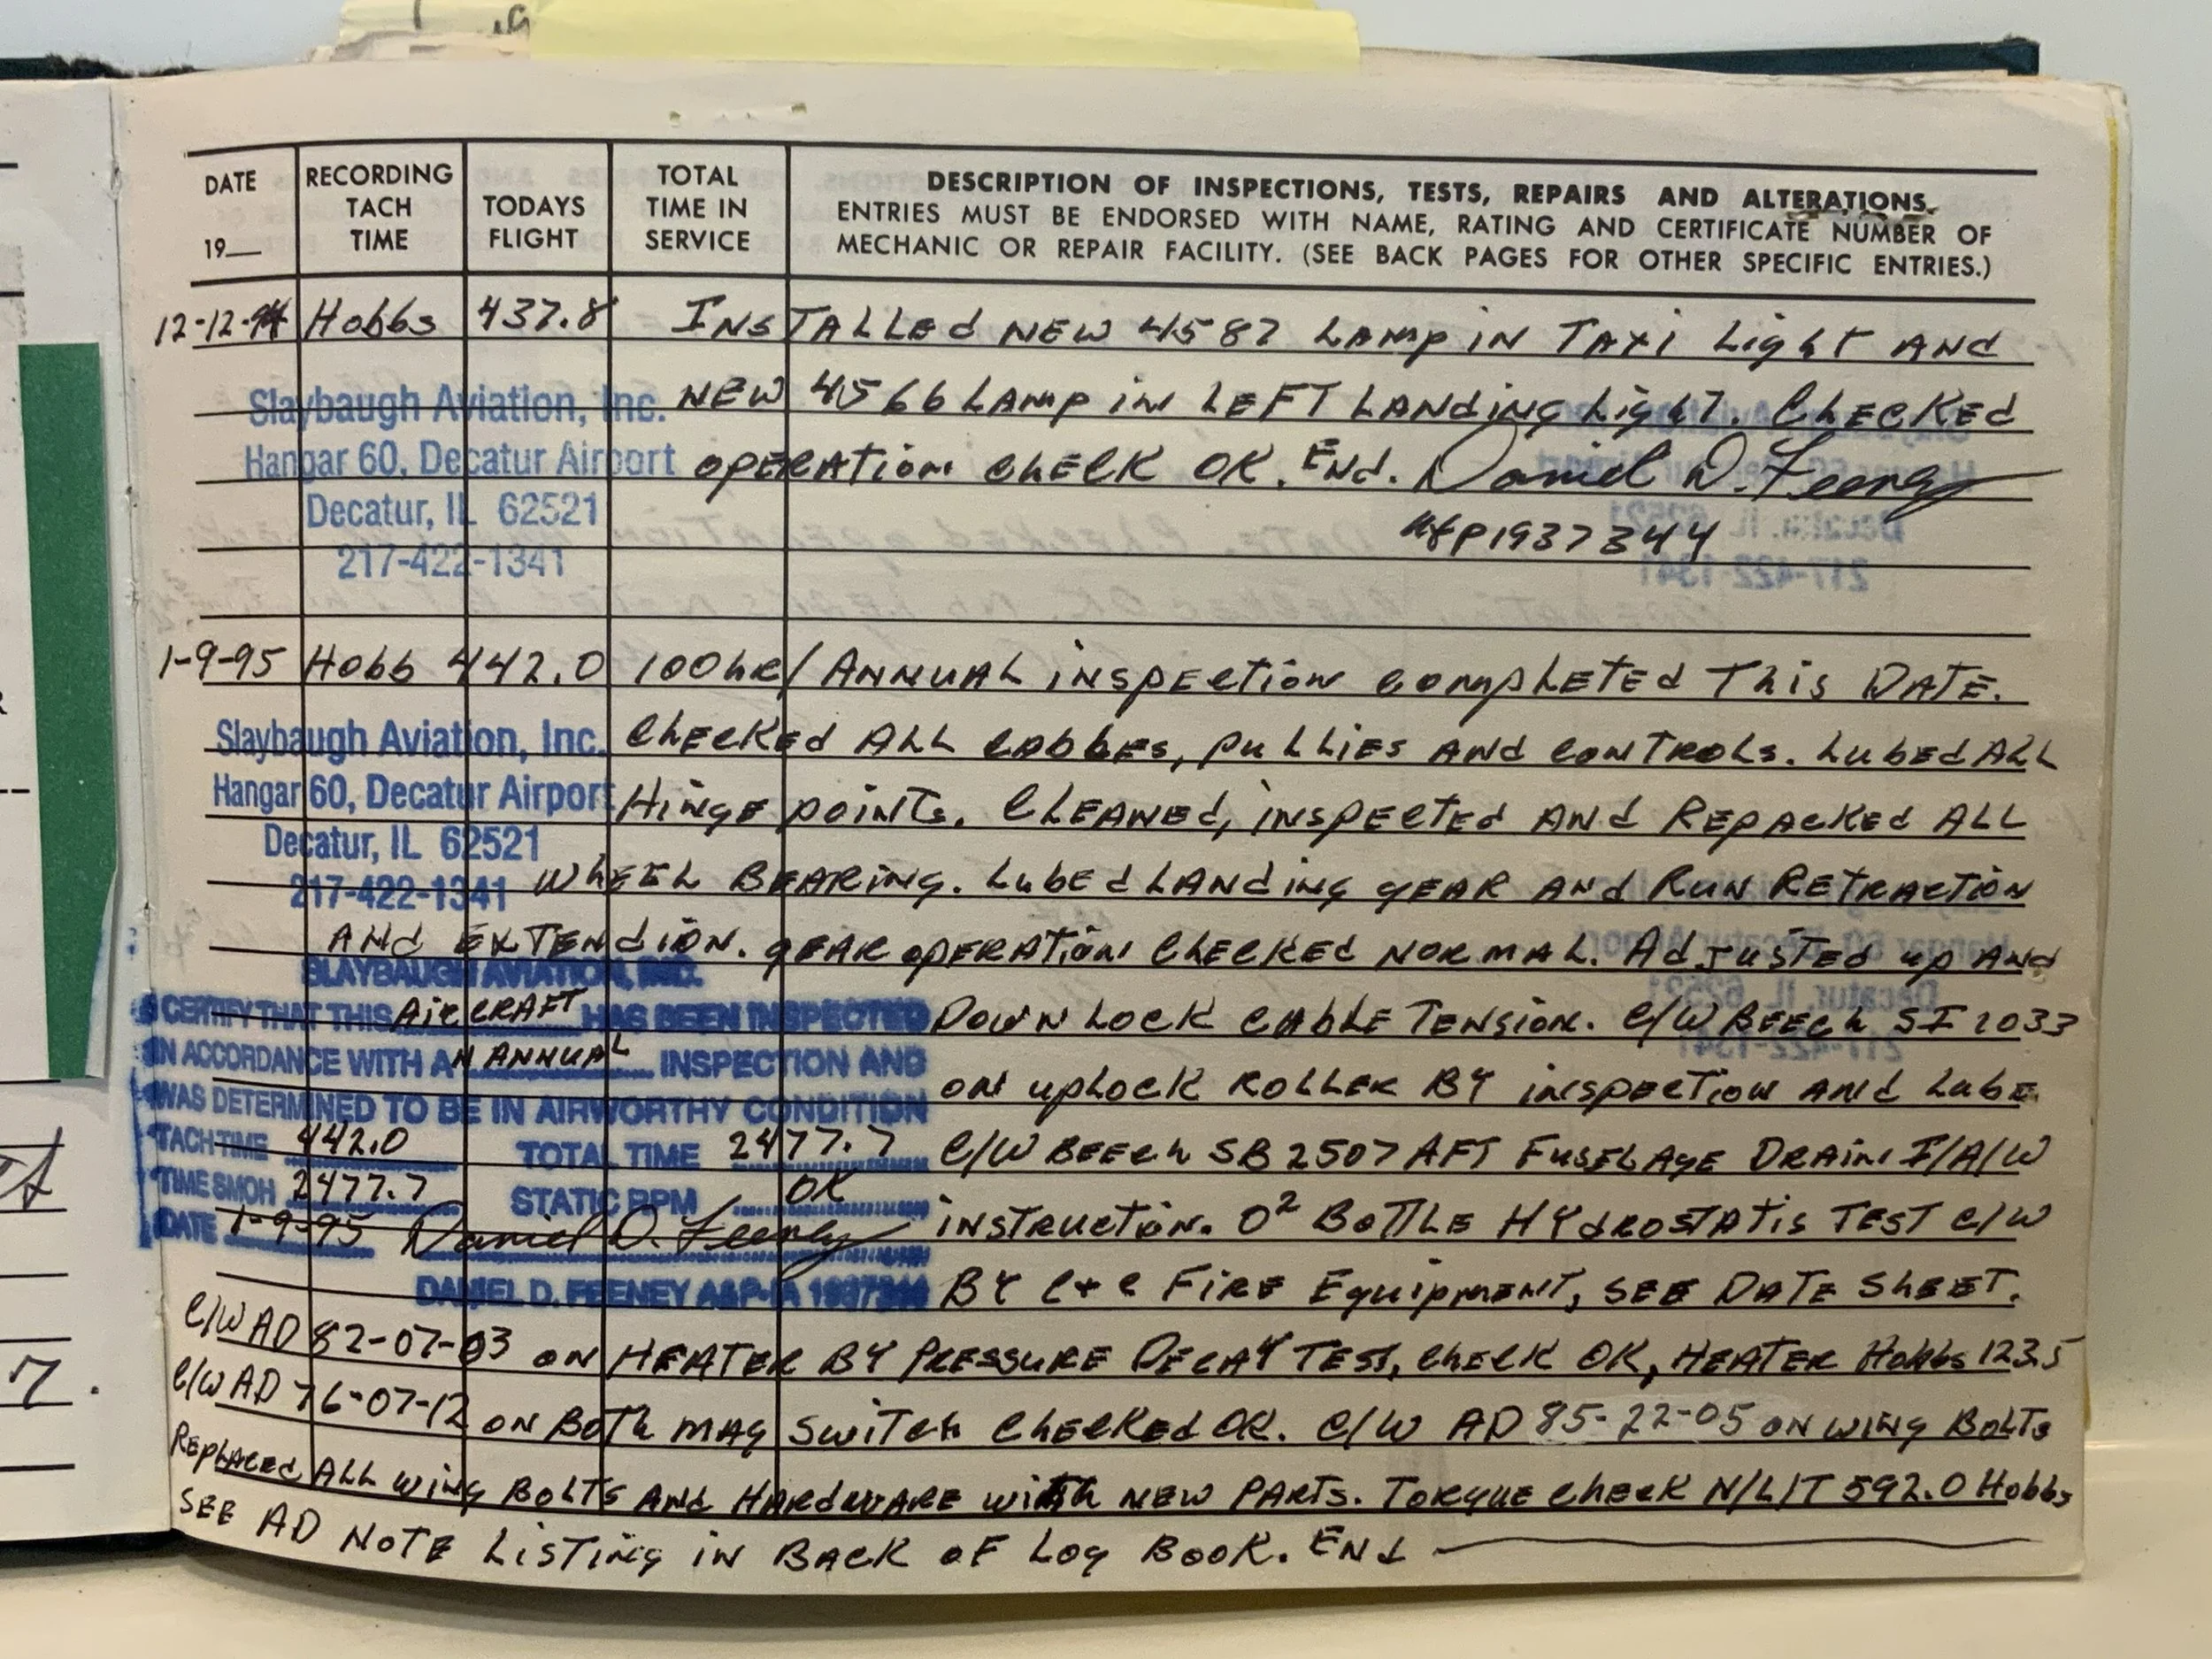 DATE 19__
RECORDING TACH TIME
TODAYS FLIGHT
TOTAL TIME IN SERVICE
DESCRIPTION OF INSPECTIONS, TESTS, REPAIRS AND ALTERATIONS.
ENTRIES MUST BE ENDORSED WITH NAME, RATING AND CERTIFICATE NUMBER OF
MECHANIC OR REPAIR FACILITY. (SEE BACK PAGES FOR OTHER SPECIFIC ENTRIES.)
12-12-94 Hobbs 437.8 INSTALLEd NEW 4587 LAmp iN TAXi Light AND
NEW 4566 LAmp in LEFT LANding Light. ChecKEd
OPERATion ChecK OK. ENd. Daniel D. Feeney
A&P1937344
Slaybaugh Aviation, Inc.
Hangar 60, Decatur Airport
Decatur, IL 62521
217-422-1341
1-9-95 Hobb 442.0 100hr/ANNUAL iNSpection compLETEd This DATE.
ChecKed ALL CABBES, puLLiES AND CONTROLS. LubEd ALL
HiNgE poiNTs. CLEANED, iNspected AND REpAcKEd ALL
WhEEL BEARiNg. LubEd LANdiNg gEAR AND RUN RETRACTiON
ANd EXTENdiON. gEAR opERATion ChecKEd NORMAL. AdJusTEd up AND
DOWN LocK CABLE TENSioN. C/W BEECh SI 2033
ON upLOCK ROLLER BY iNspEcTioN ANd LubE
C/W BEECh SB2507 AFT FusELAgE DRAiN I/A/W
iNSTRucTioN. O² BoTTLE HYdROSTATis TEST C/W
BY C+C FiRE EquipmENT, SEE DATE SHEET.
Slaybaugh Aviation, Inc.
Hangar 60, Decatur Airport
Decatur, IL 62521
217-422-1341
SLAYBAUGH AVIATION, INC.
I CERTIFY THAT THIS AiRCRAFT HAS BEEN INSPECTED
IN ACCORDANCE WITH AN ANNUAL INSPECTION AND
WAS DETERMINED TO BE IN AIRWORTHY CONDITION
TACH TIME 442.0 TOTAL TIME 2477.7
TIME SMOH 2477.7 STATIC RPM OK
DATE 1-9-95 Daniel D. Feeney
DANIEL D. FEENEY A&P-IA 1937344
C/W AD 82-07-03 ON HEATER BY PRESSURE DECAY TEST, ChecK OK, HEATER Hobbs 123.5
C/W AD 76-07-12 ON BoTh MAg SWiTch ChecKEd OK. C/W AD 85-22-05 ON WiNg BoLTs
REpLAcEd ALL wiNg BoLTS ANd HARdwARE with NEW PARTs. TORquE ChecK N/L/T 592.0 Hobbs
SEE AD NoTE LiSTiNg iN BAcK oF Log BooK. ENd